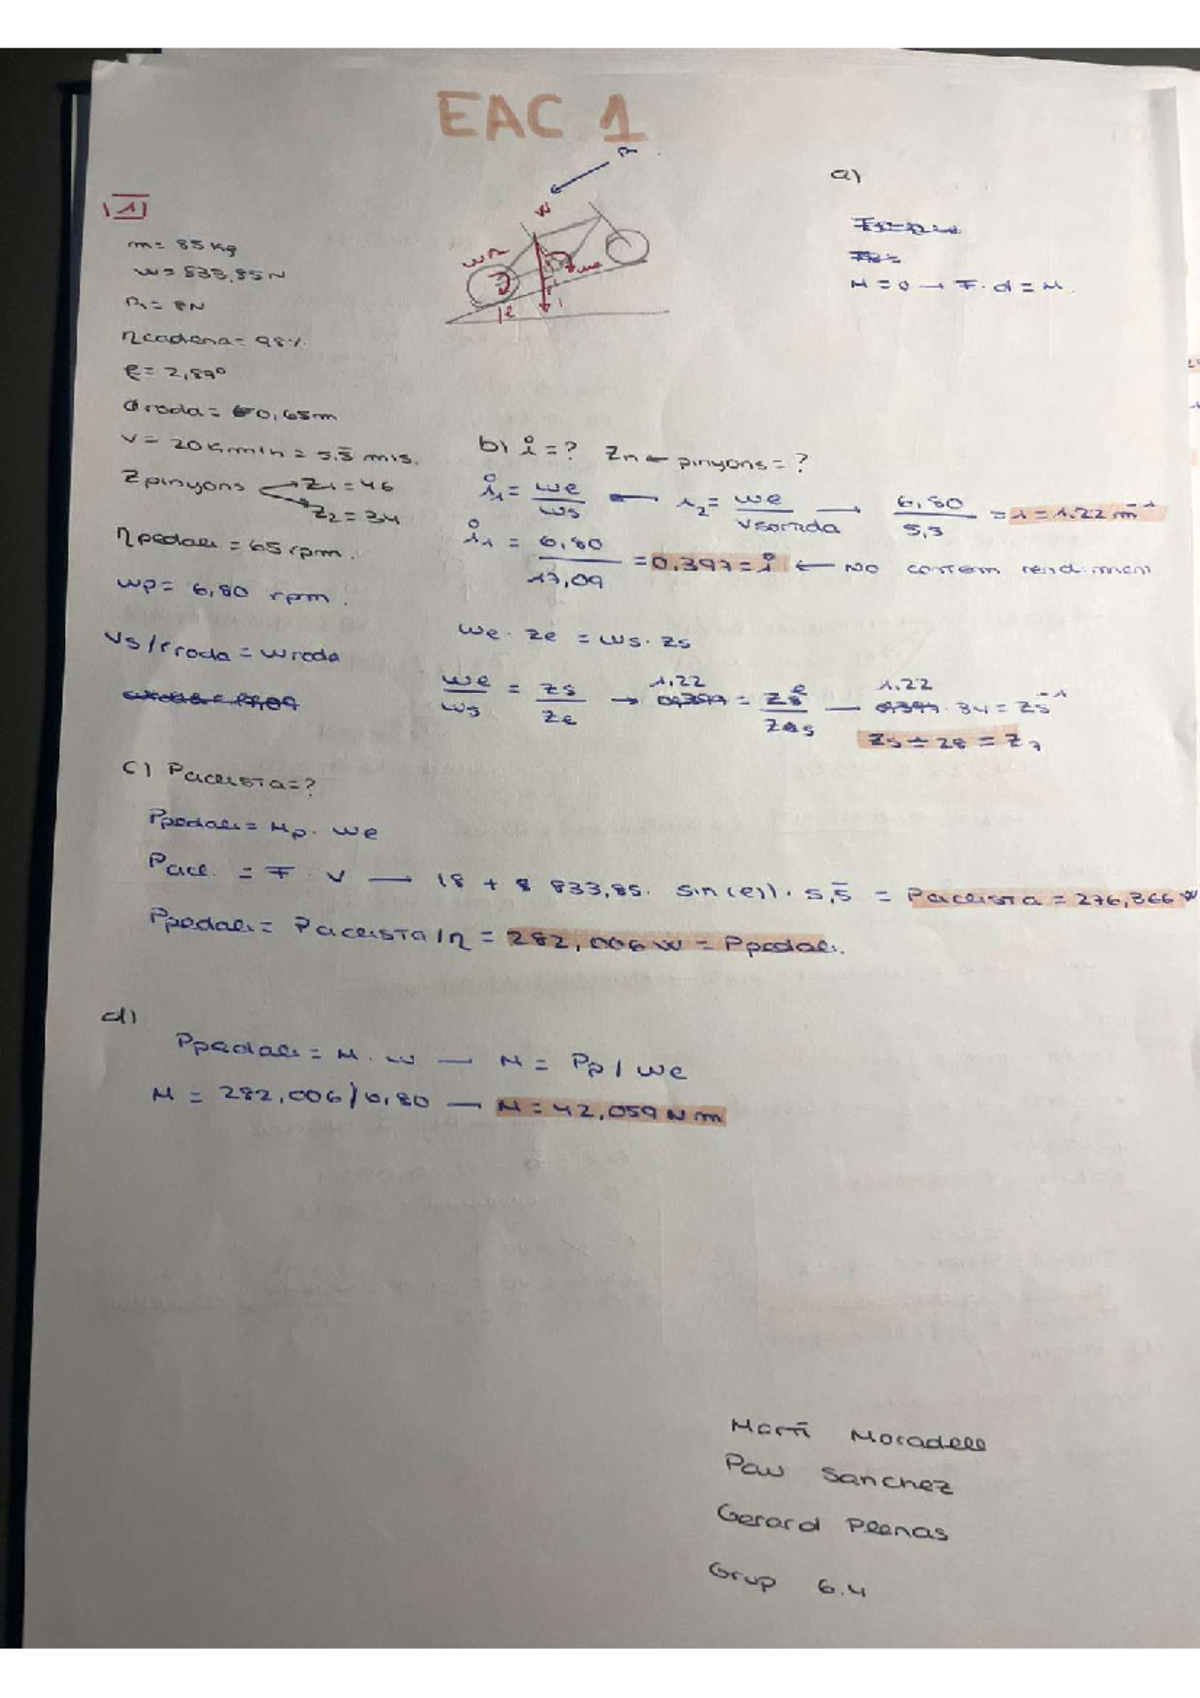 EAC 1
1)
m = 85 kg
w = 833,85 N
R1 = 8N
ηcadena = 98%
φ = 2,87°
Øroda = 0,65m
v = 20 km/h = 5,5 m/s.
Zpinyons → Z1 = 46
Z2 = 34
ηpedals = 65 rpm.
wp = 6,80 rpm.
Vs/rroda = wroda
a)
M = 0 → F · d = M.
b) i = ? Zn ← pinyons = ?
i1 = we/ws ← i2 = we/vsortida → 6,80/5,5 = i = 1.22 m⁻¹
i1 = 6,80/17,09 = 0,397 = i ← No contem rendiment
we · ze = ws · zs
we/ws = zs/ze → 1,22 = — 1.22 · 34 = Zs⁻¹
Zs ÷ 28 = Z7
c) Pciclista = ?
Ppedals = Mp · we
F · v → (8 + 833,85 · sin(φ)) · 5,5 = Pciclista = 276,366 W
Ppedals = Pciclista/η = 282,006 W = Ppedals.
d)
Ppedals = M · w — M = Pp/we
M = 282,006/6,80 — M = 42,059 N m
Martí Moradell
Pau Sanchez
Gerard Plenas
Grup 6.4